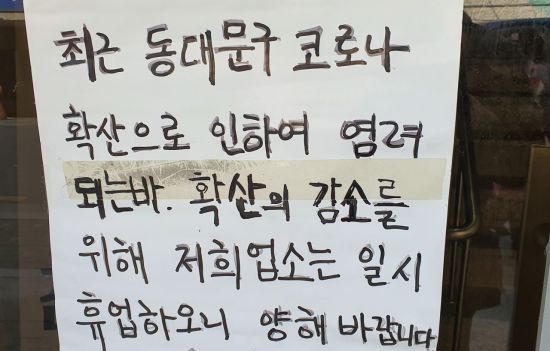 최근 동대문구 코로나
확산으로 인하여 염려
되는바. 확산의 감소를
위해 저희업소는 일시
휴업하오니 양해바랍니다